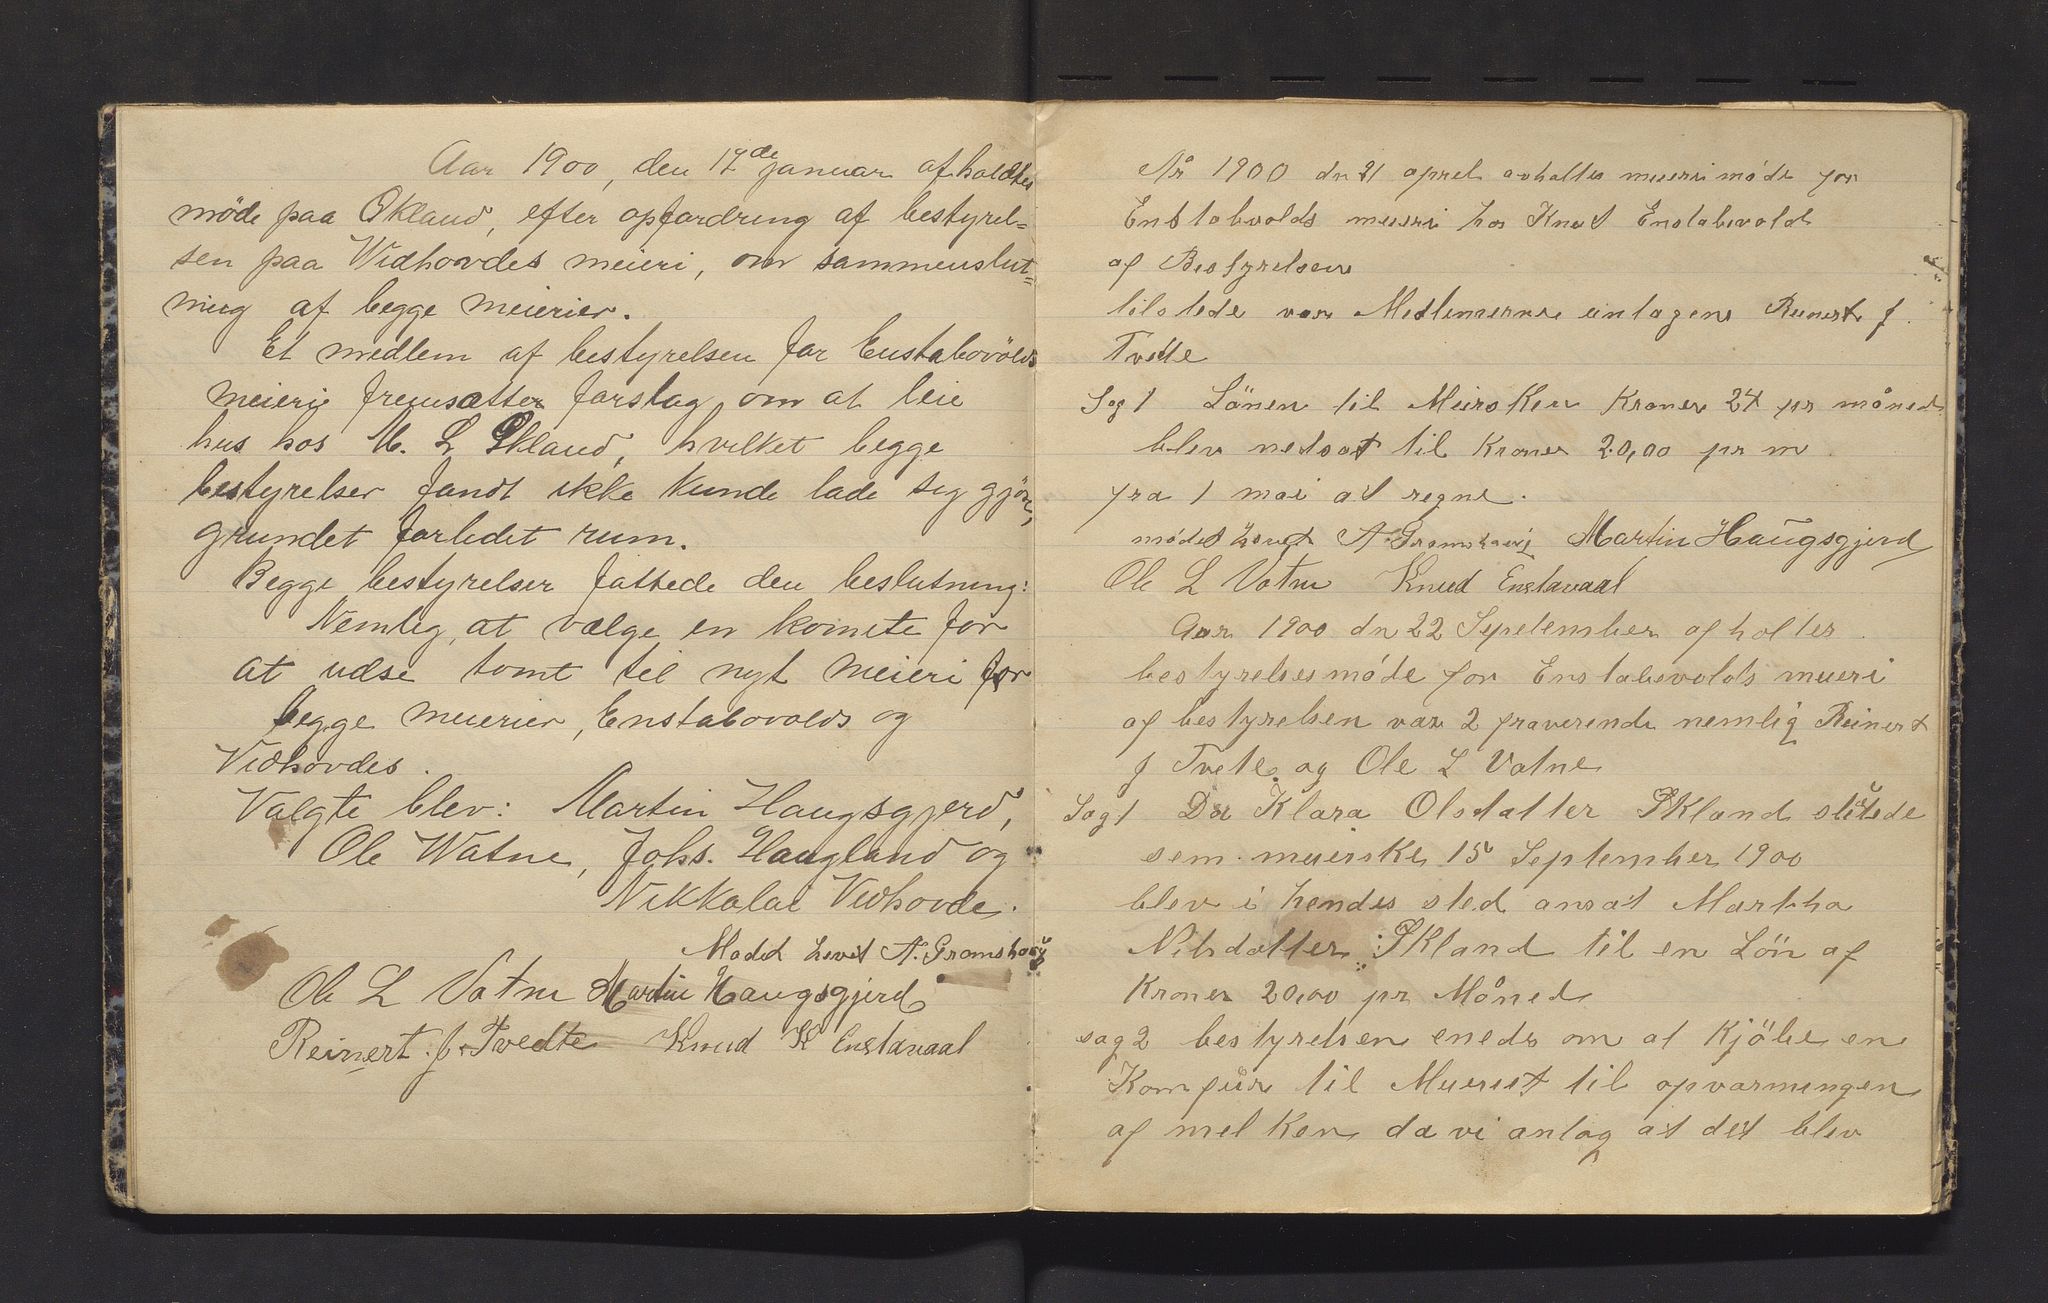 Aar 1900, den 17de januar afholdtes
möde paa Økland, efter opfordring af bestyrel=
sen paa Widhovdes meieri, om sammenslut=
ning af begge meierier.
Et medlem af bestyrelsen for Enstabovolds
meieri fremsatter forslag om at leie
hus hos M. L. Økland, hvilket begge
bestyrelser fandt ikke kunde lade sig gjöre,
grundet forledet rum.
Begge bestyrelser fattede den beslutning:
Nemlig, at vælge en komite for
at udse tomt til nyt meieri for
begge meierier, Enstabovolds og
Vidhovdes.
Valgte blev: Martin Haugsgjerd,
Ole Watne, Johs. Haugland og
Nikkolai Vidhovde.
Mödet hevet A. Gramshaug
Ole L Vatne Martin Haugsgjerd
Reinert. J. Tvedte Knud K Enstavaal
År 1900 dn 21 aprel avholtes mueri möde for
Enstabvolds mueri hos Knut Enstabovold
af Bestyrelsen
tilstede var Medlemerne untagen Reinert J.
Tvette
Sag 1 Lönen til Meirsken Kroner 24 pr måned
blev nedsat til Kroner 20,00 pr m
fra 1 mai at regne.
mödet hevet A Gramshaug Martin Haugsgjerd
Ole L Vatne Knud Enstavaal
Aar 1900 dn 22 Sepetember afholtes
bestyrelsesmöde for Enstabovolds mueri
af bestyrelsen var 2 fraverende nemlig Reinert
J Tvete og Ole L Vatne
Sag 1 Da Klara Olsdatter Økland sluttede
sem meierske 15 September 1900
blev i hendes sted ansat Martha
Nilsdatter Økland til en Lön af
Kroner 20,00 pr Måned
sag 2 bestyrelsen eneds om at Kjöbe en
Komfür til Mueriet til opvarmingen
af melken da vi antog at det blev